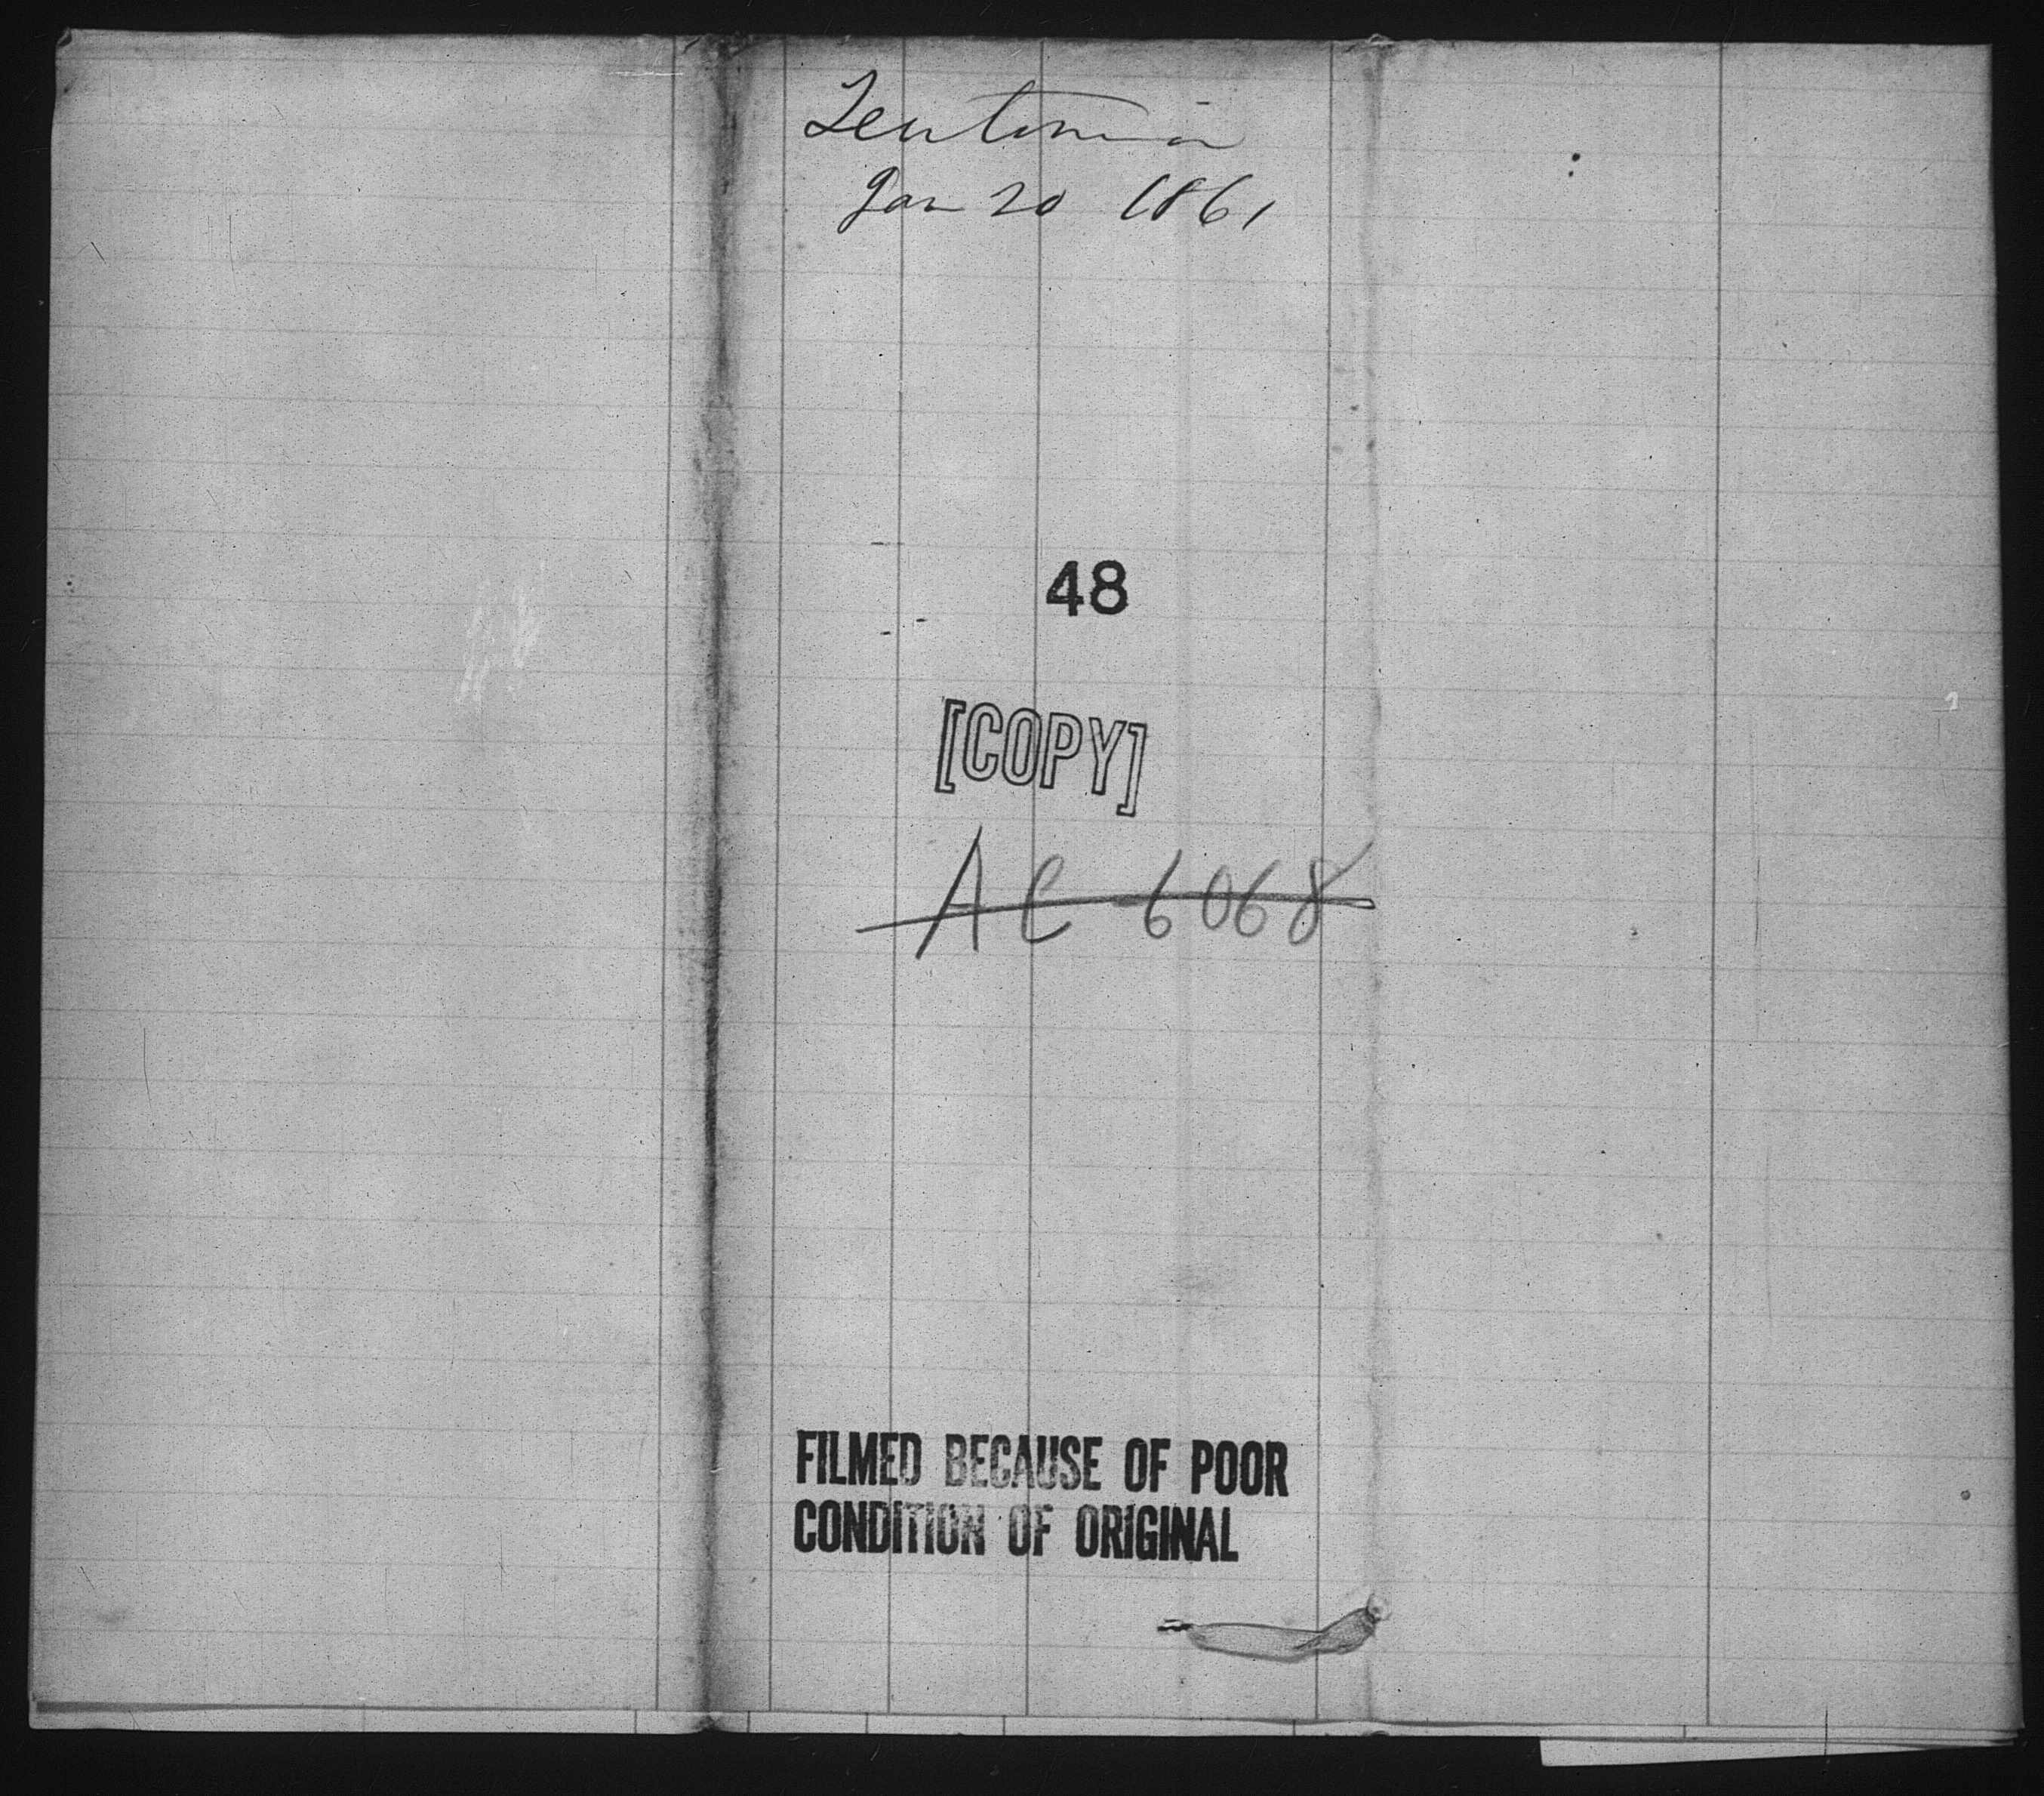 Teutonia
Jan 20 1861
48
[COPY]
AC 6068
FILMED BECAUSE OF POOR
CONDITION OF ORIGINAL